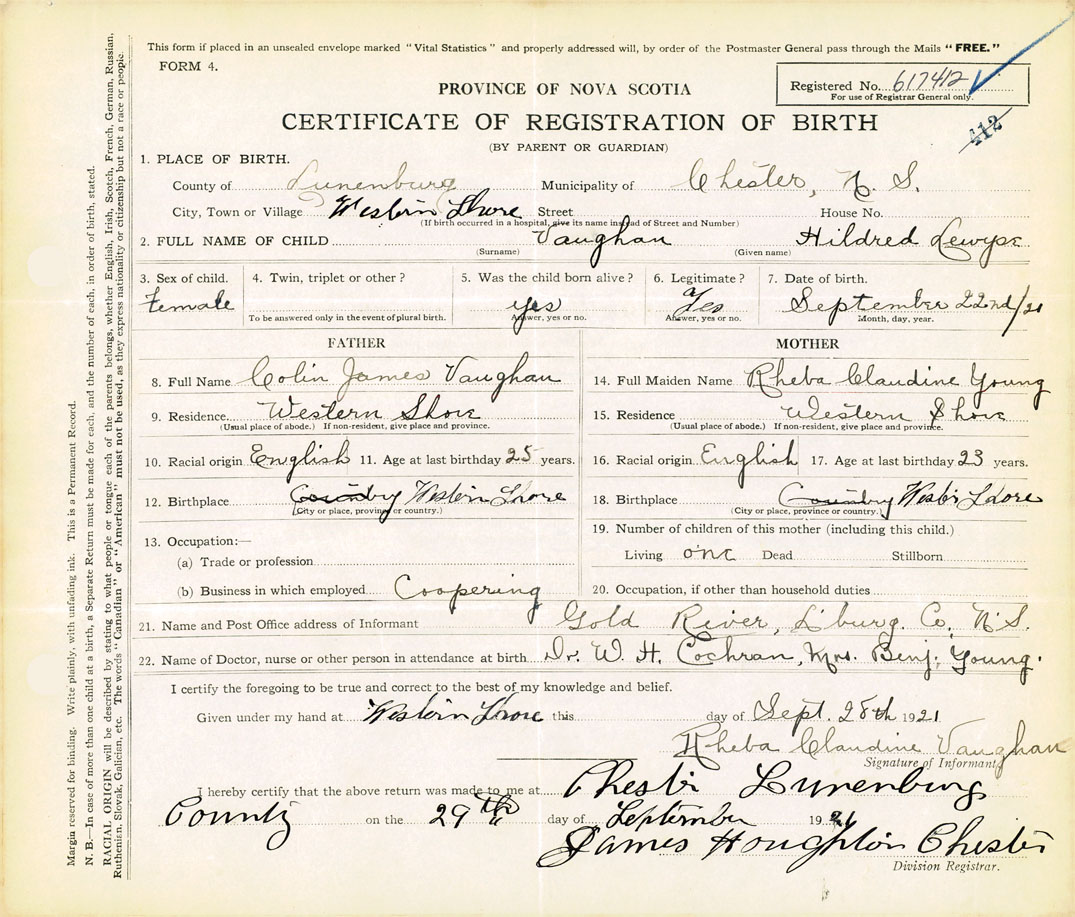 This form if placed in an unsealed envelope marked "Vital Statistics" and properly addressed will, by order of the Postmaster General pass through the Mails "FREE."
FORM 4.
Registered No. 617412
For use of Registrar General only.
PROVINCE OF NOVA SCOTIA
CERTIFICATE OF REGISTRATION OF BIRTH
412
(BY PARENT OR GUARDIAN)
1. PLACE OF BIRTH.
County of Lunenburg Municipality of Chester, N. S.
City, Town or Village Western Shore Street House No.
(If birth occurred in a hospital, give its name instead of Street and Number)
2. FULL NAME OF CHILD Vaughan Hildred
(Surname) (Given name)
3. Sex of child. 4. Twin, triplet or other? 5. Was the child born alive? 6. Legitimate? 7. Date of birth.
Female yes Yes September 22nd/
To be answered only in the event of plural birth. Answer, yes or no. Answer, yes or no. Month, day, year.
FATHER
8. Full Name Colin James Vaughan
9. Residence Western Shore
(Usual place of abode.) If non-resident, give place and province.
10. Racial origin English 11. Age at last birthday 25 years.
12. Birthplace Country Western Shore
(City or place, province or country.)
13. Occupation:—
(a) Trade or profession
(b) Business in which employed Coopering
MOTHER
14. Full Maiden Name Rheba Claudine Young
15. Residence Western Shore
(Usual place of abode.) If non-resident, give place and province.
16. Racial origin English 17. Age at last birthday 23 years.
18. Birthplace Country Western Shore
(City or place, province or country.)
19. Number of children of this mother (including this child.)
Living one Dead Stillborn
20. Occupation, if other than household duties
21. Name and Post Office address of Informant Gold River, L'burg. Co. N.S.
22. Name of Doctor, nurse or other person in attendance at birth Dr. W. H. Cochran, Mrs. Benj. Young.
I certify the foregoing to be true and correct to the best of my knowledge and belief.
Given under my hand at Western Shore this day of Sept. 28th 1921
Rheba Claudine Vaughan
Signature of Informant.
I hereby certify that the above return was made to me at Chester Lunenburg
County on the 29th day of September 1921
James Houghton Chester
Division Registrar.
Margin reserved for binding. Write plainly, with unfading ink. This is a Permanent Record.
N. B.—In case of more than one child at a birth, a Separate Return must be made for each, and the number of each, in order of birth, stated.
RACIAL ORIGIN will be described by stating to what people or tongue each of the parents belongs, whether English, Irish, Scotch, French, German, Russian,
Ruthenian, Slovak, Galician, etc. The words "Canadian" or "American" must not be used, as they express nationality or citizenship but not a race or people.